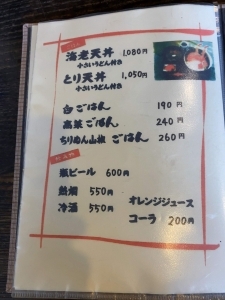 海老天丼 1,080円
小さいうどん付き
とり天丼 1,050円
小さいうどん付き
白ごはん 190円
高菜ごはん 240円
ちりめん山椒ごはん 260円
瓶ビール 600円
熱燗 550円
冷酒 550円
オレンジジュース
コーラ 200円